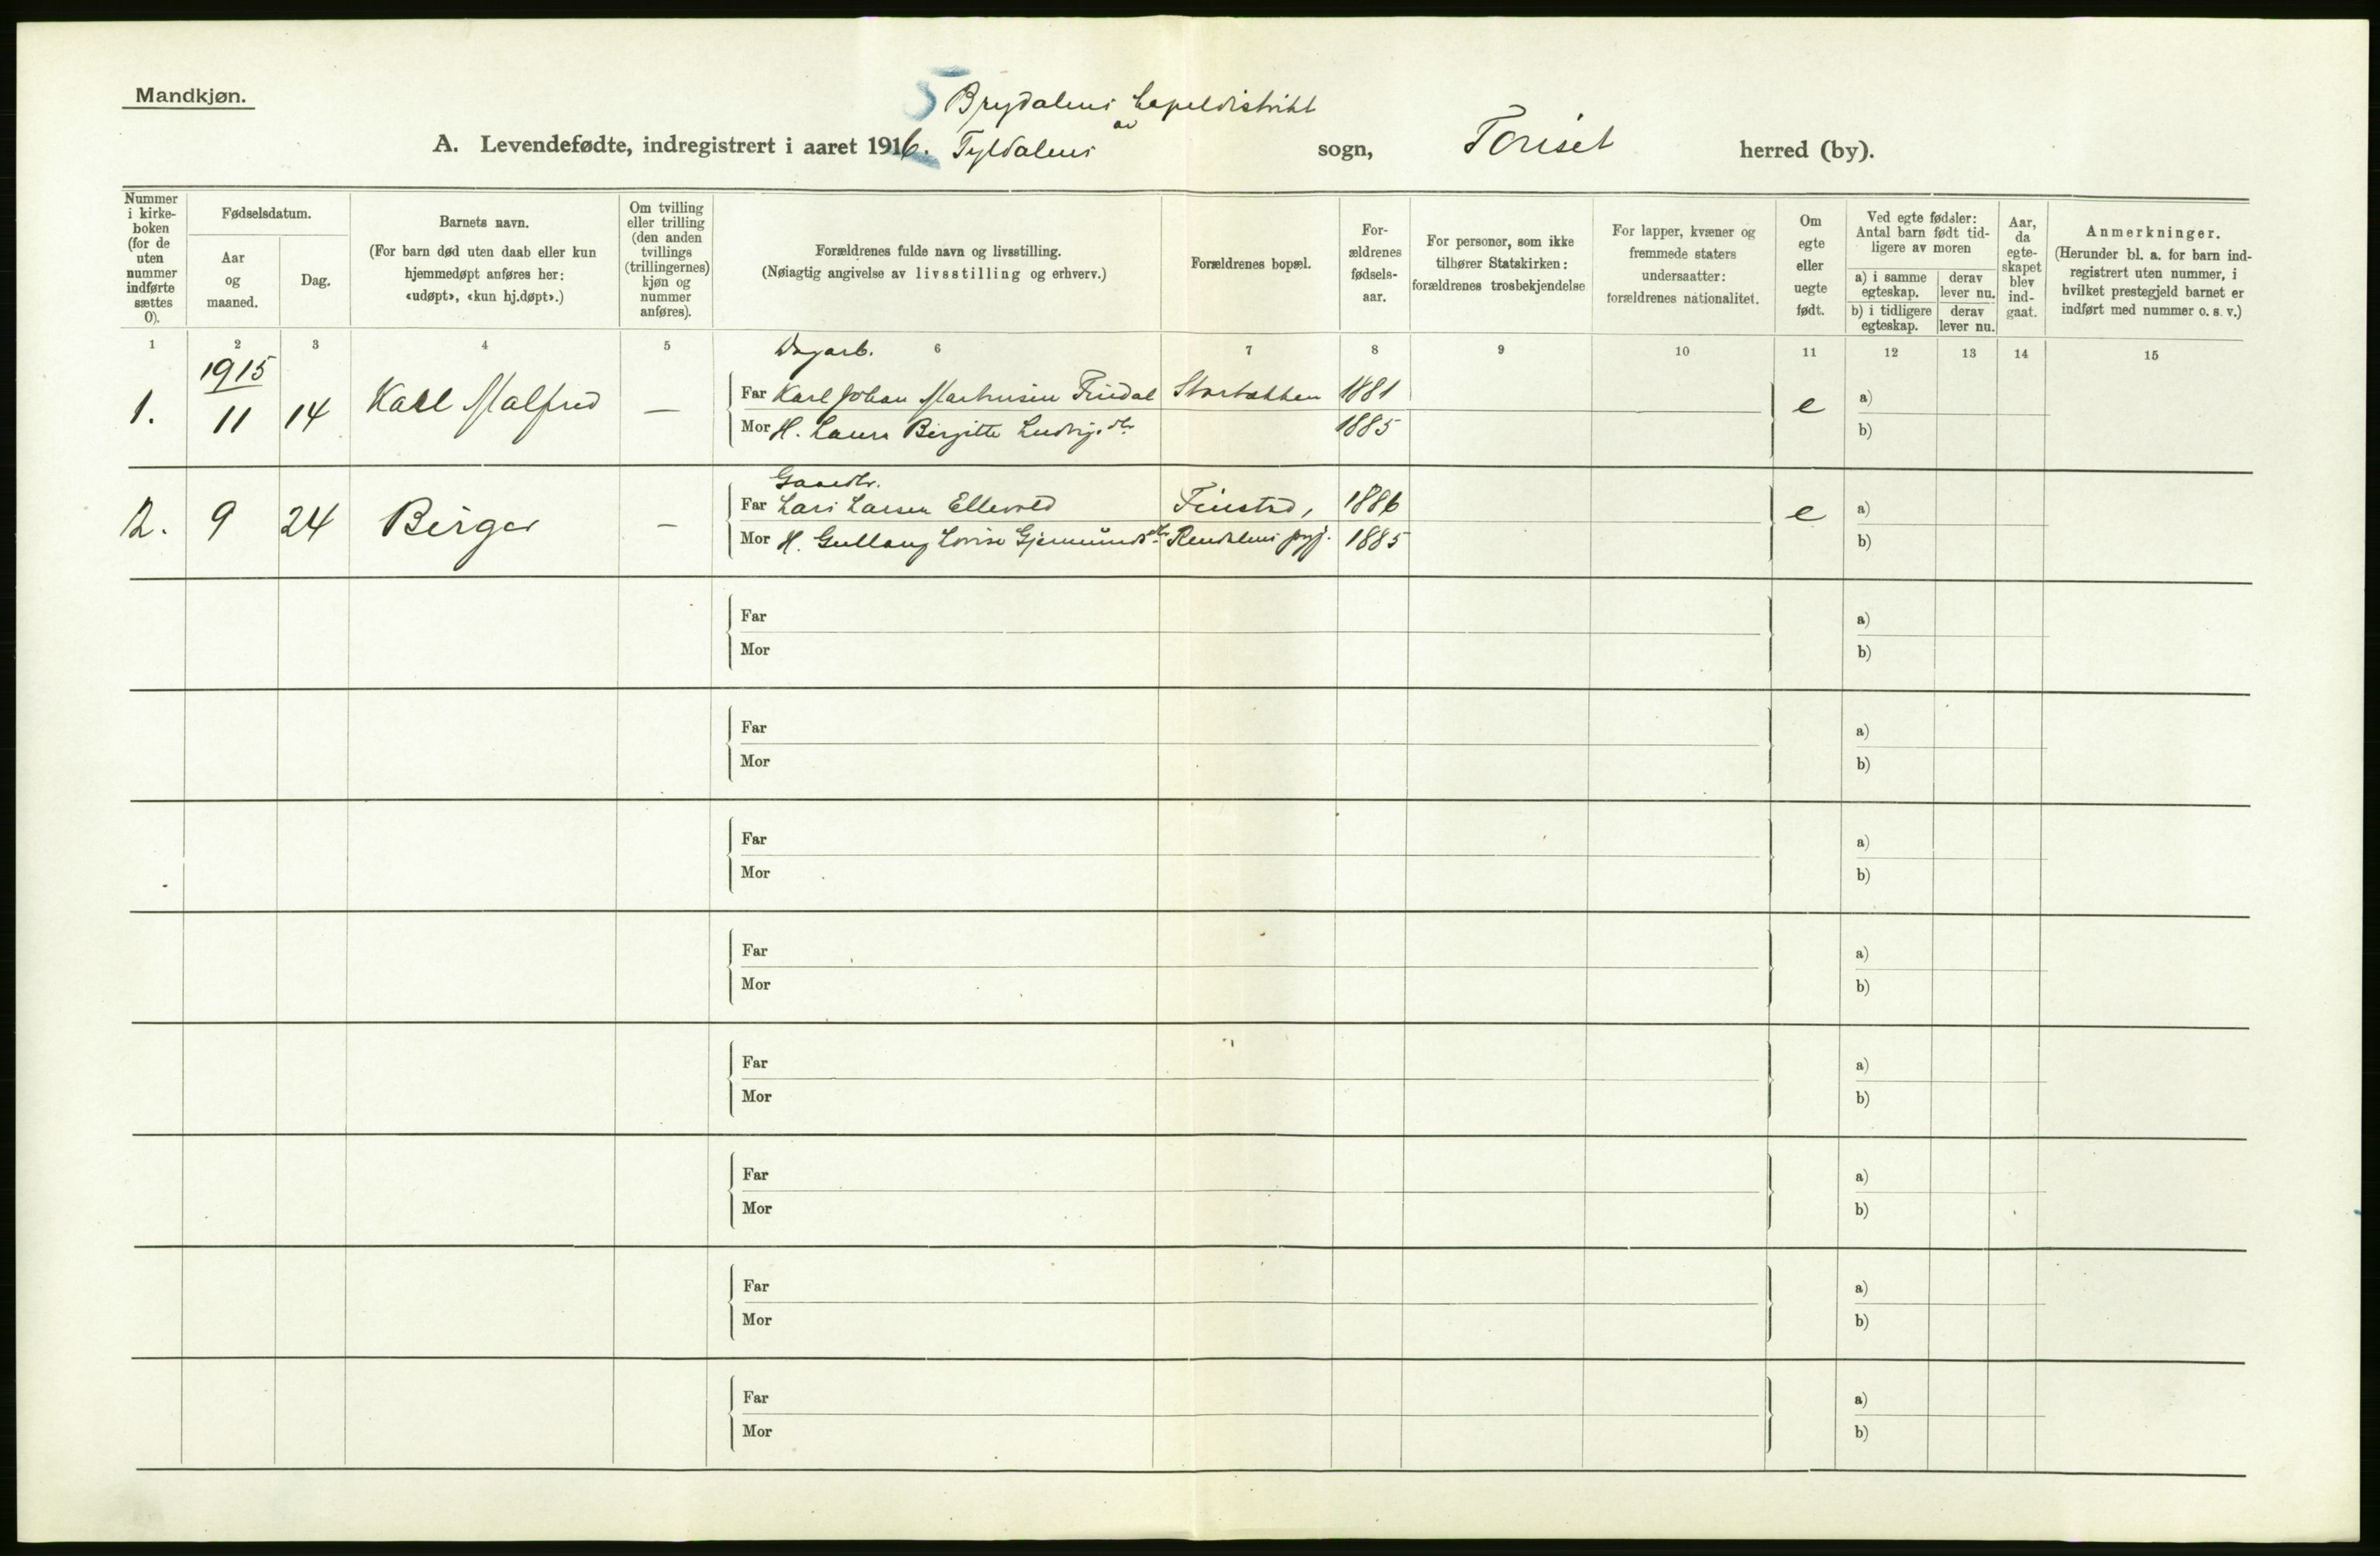 Mandkjøn.
5 Brydalens kapeldistrikt
av
A. Levendefødte, indregistrert i aaret 1916. Tyldalens sogn, Tønset herred (by).
Nummer i kirke-boken (for de uten nummer indførte sættes 0).
Fødselsdatum.
Aar og maaned.
Dag.
Barnets navn.
(For barn død uten daab eller kun hjemmedøpt anføres her: «udøpt», «kun hj.døpt».)
Om tvilling eller trilling (den anden tvillings (trillingernes) kjøn og nummer anføres).
Forældrenes fulde navn og livsstilling.
(Nøiagtig angivelse av livsstilling og erhverv.)
Forældrenes bopæl.
For-ældrenes fødsels-aar.
For personer, som ikke tilhører Statskirken: forældrenes trosbekjendelse
For lapper, kvæner og fremmede staters undersaatter: forældrenes nationalitet.
Om egte eller uegte født.
Ved egte fødsler: Antal barn født tid-ligere av moren
a) i samme egteskap.
derav lever nu.
b) i tidligere egteskap.
derav lever nu.
Aar, da egte-skapet blev ind-gaat.
Anmerkninger.
(Herunder bl. a. for barn ind-registrert uten nummer, i hvilket prestegjeld barnet er indført med nummer o. s. v.)
1 2 3 4 5 6 7 8 9 10 11 12 13 14 15
1915
Dagarb.
1. 11 14 Karl Malfred — Far Karl Johan Martinsen Findal 1881 e a)
Mor H. Laura Birgitte Ludvigsdtr 1885 b)
Gaardbr.
2. 9 24 Birger — Far Lars Larsen Ellevold Finstad, 1886 e a)
Mor H. Gullaug Lovise Gjermundsdtr Rendalens prgj. 1885 b)
Far a)
Mor b)
Far a)
Mor b)
Far a)
Mor b)
Far a)
Mor b)
Far a)
Mor b)
Far a)
Mor b)
Far a)
Mor b)
Far a)
Mor b)